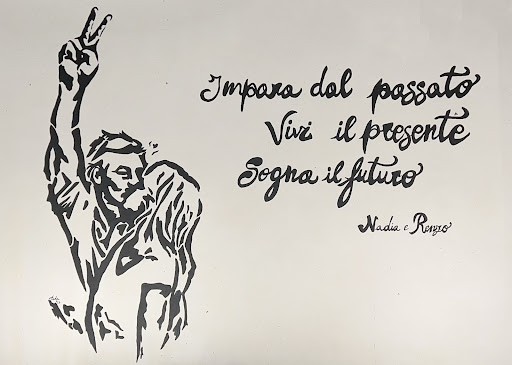 Impara dal passato
Vivi il presente
Sogna il futuro
Nadia e Renzo